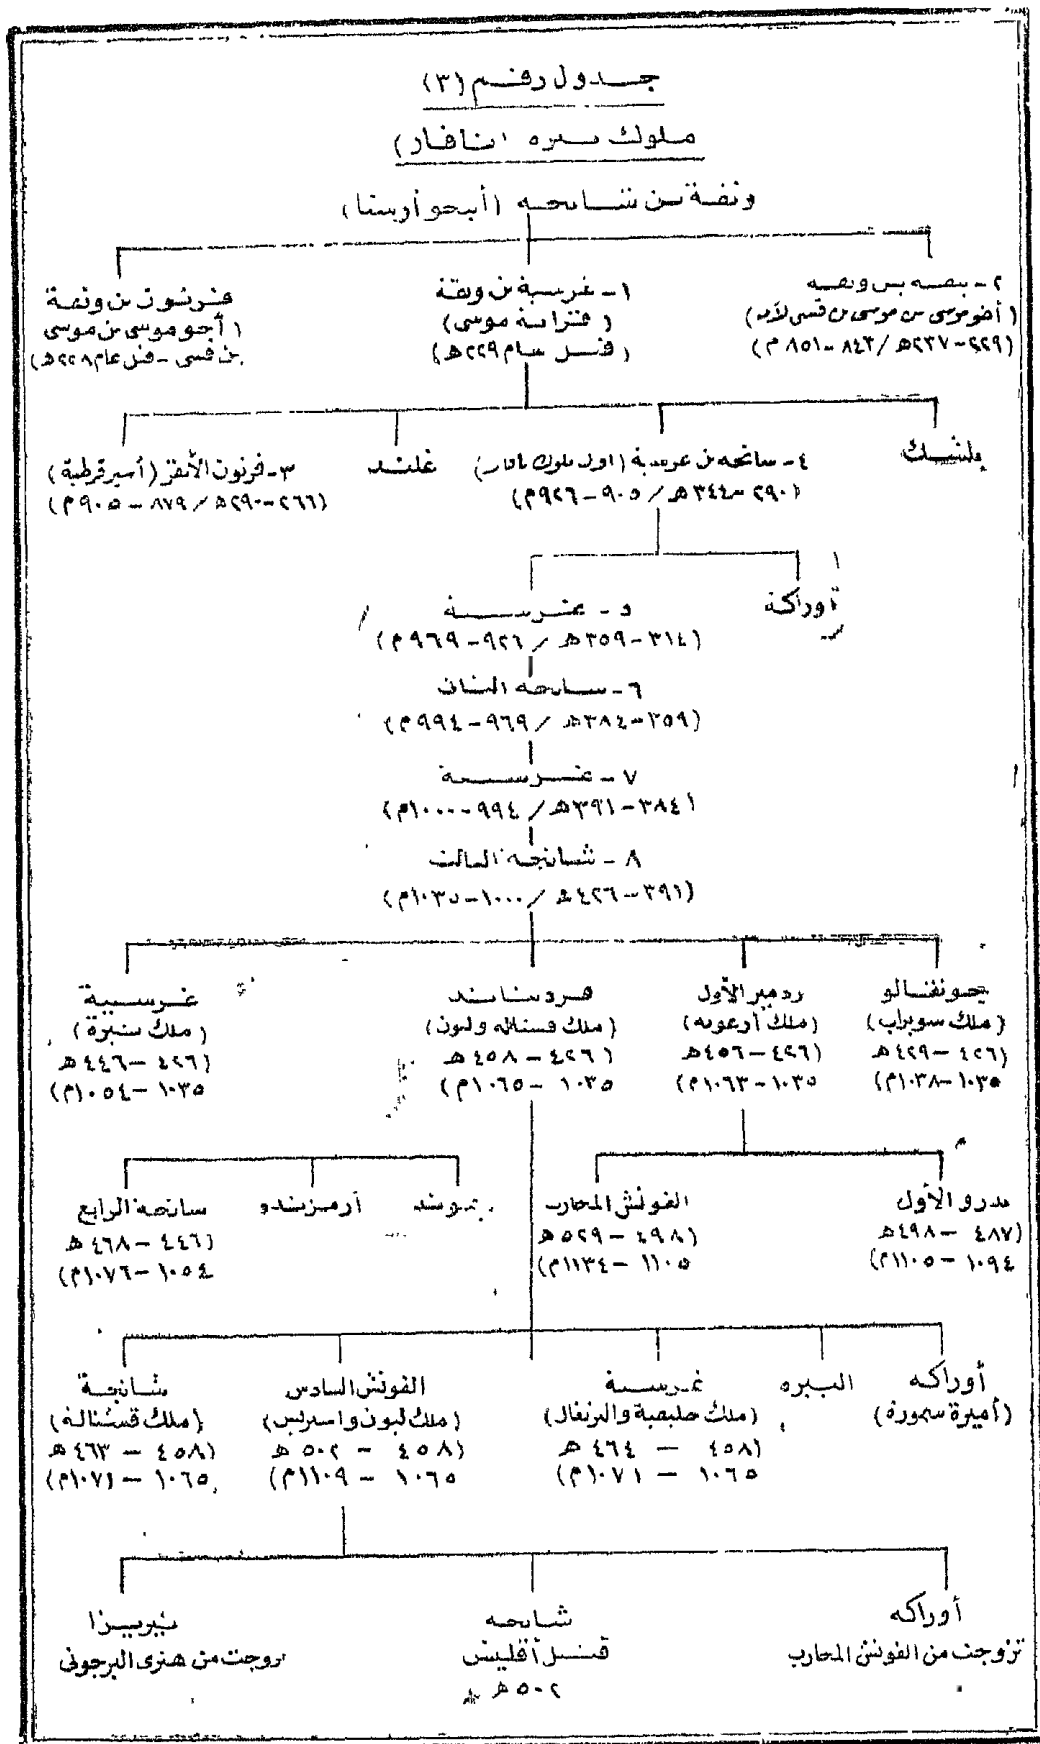 جدول رقم (٣)
ملوك نبره (نافار)
ونقة بن شانجه (أنيجو أريستا)
٢ - ينقه بن ونقه
(أخو موسى بن موسى بن قسى لأمه)
(٢٢٩-٢٣٧ھ/ ٨٤٣-٨٥١ م)
١ - غرسية بن ونقة
موسى)
(قتل عام ٢٢٩ھ)
فرتون بن ونقة
(أخو موسى بن موسى
بن قسى - قتل عام ٢٢٨ھ)
بلشك
٤ - سانجه بن غرسية (اول ملوك نافار)
(٢٩٠-٣٤٤ھ/ ٩٠٥-٩٢٦م)
غلند
٣- فرتون الأنقر (أسير قرطبة)
(٢٦٦-٢٩٠ھ/ ٨٧٩-٩٠٥م)
أوراكة
٥ - غرسية
(٣١٤-٣٥٩ھ / ٩٢٦-٩٦٩م)
٦ - سانجه الثانى
(٣٥٩-٣٨٤ھ / ٩٦٩-٩٩٤م)
٧ - غرسية
(٣٨٤-٣٩١ھ / ٩٩٤-١٠٠٠م)
٨ - شانجه الثالث
(٣٩١-٤٢٦ھ / ١٠٠٠-١٠٣٥م)
جونفالو
(ملك سوبراب)
(٤٢٦-٤٢٩ھ
١٠٣٥-١٠٣٨م)
ردمير الأول
(ملك أرغونه)
(٤٢٦-٤٥٦ھ
١٠٣٥-١٠٦٣م)
فرديناند
(ملك قشتاله وليون)
(٤٢٦-٤٥٨ھ
١٠٣٥-١٠٦٥م)
غرسية
(ملك نبرة)
(٤٢٦-٤٤٦ھ
١٠٣٥-١٠٥٤م)
بدرو الأول
(٤٨٧-٤٩٨ھ
١٠٩٤-١١٠٥م)
الفونش المحارب
(٤٩٨-٥٢٩ھ
١١٠٥-١١٣٤م)
ريموند
أرمزندو
سانجه الرابع
(٤٤٦-٤٦٨ھ
١٠٥٤-١٠٧٦م)
أوراكه
(أميرة سمورة)
البيره
غرسية
(ملك جليقية والبرتغال)
(٤٥٨ - ٤٦٤ھ
١٠٦٥ - ١٠٧١م)
الفونش السادس
(ملك ليون واستريس)
(٤٥٨ - ٥٠٢ھ
١٠٦٥ - ١١٠٩م)
شانجة
(ملك قشتالة)
(٤٥٨ - ٤٦٣ھ
١٠٦٥ - ١٠٧١م)
أوراكه
تزوجت من الفونش المحارب
شانجه
قتيل أقليش
٥٠٢ھ
تيريزا
زوجت من هنرى البرجونى